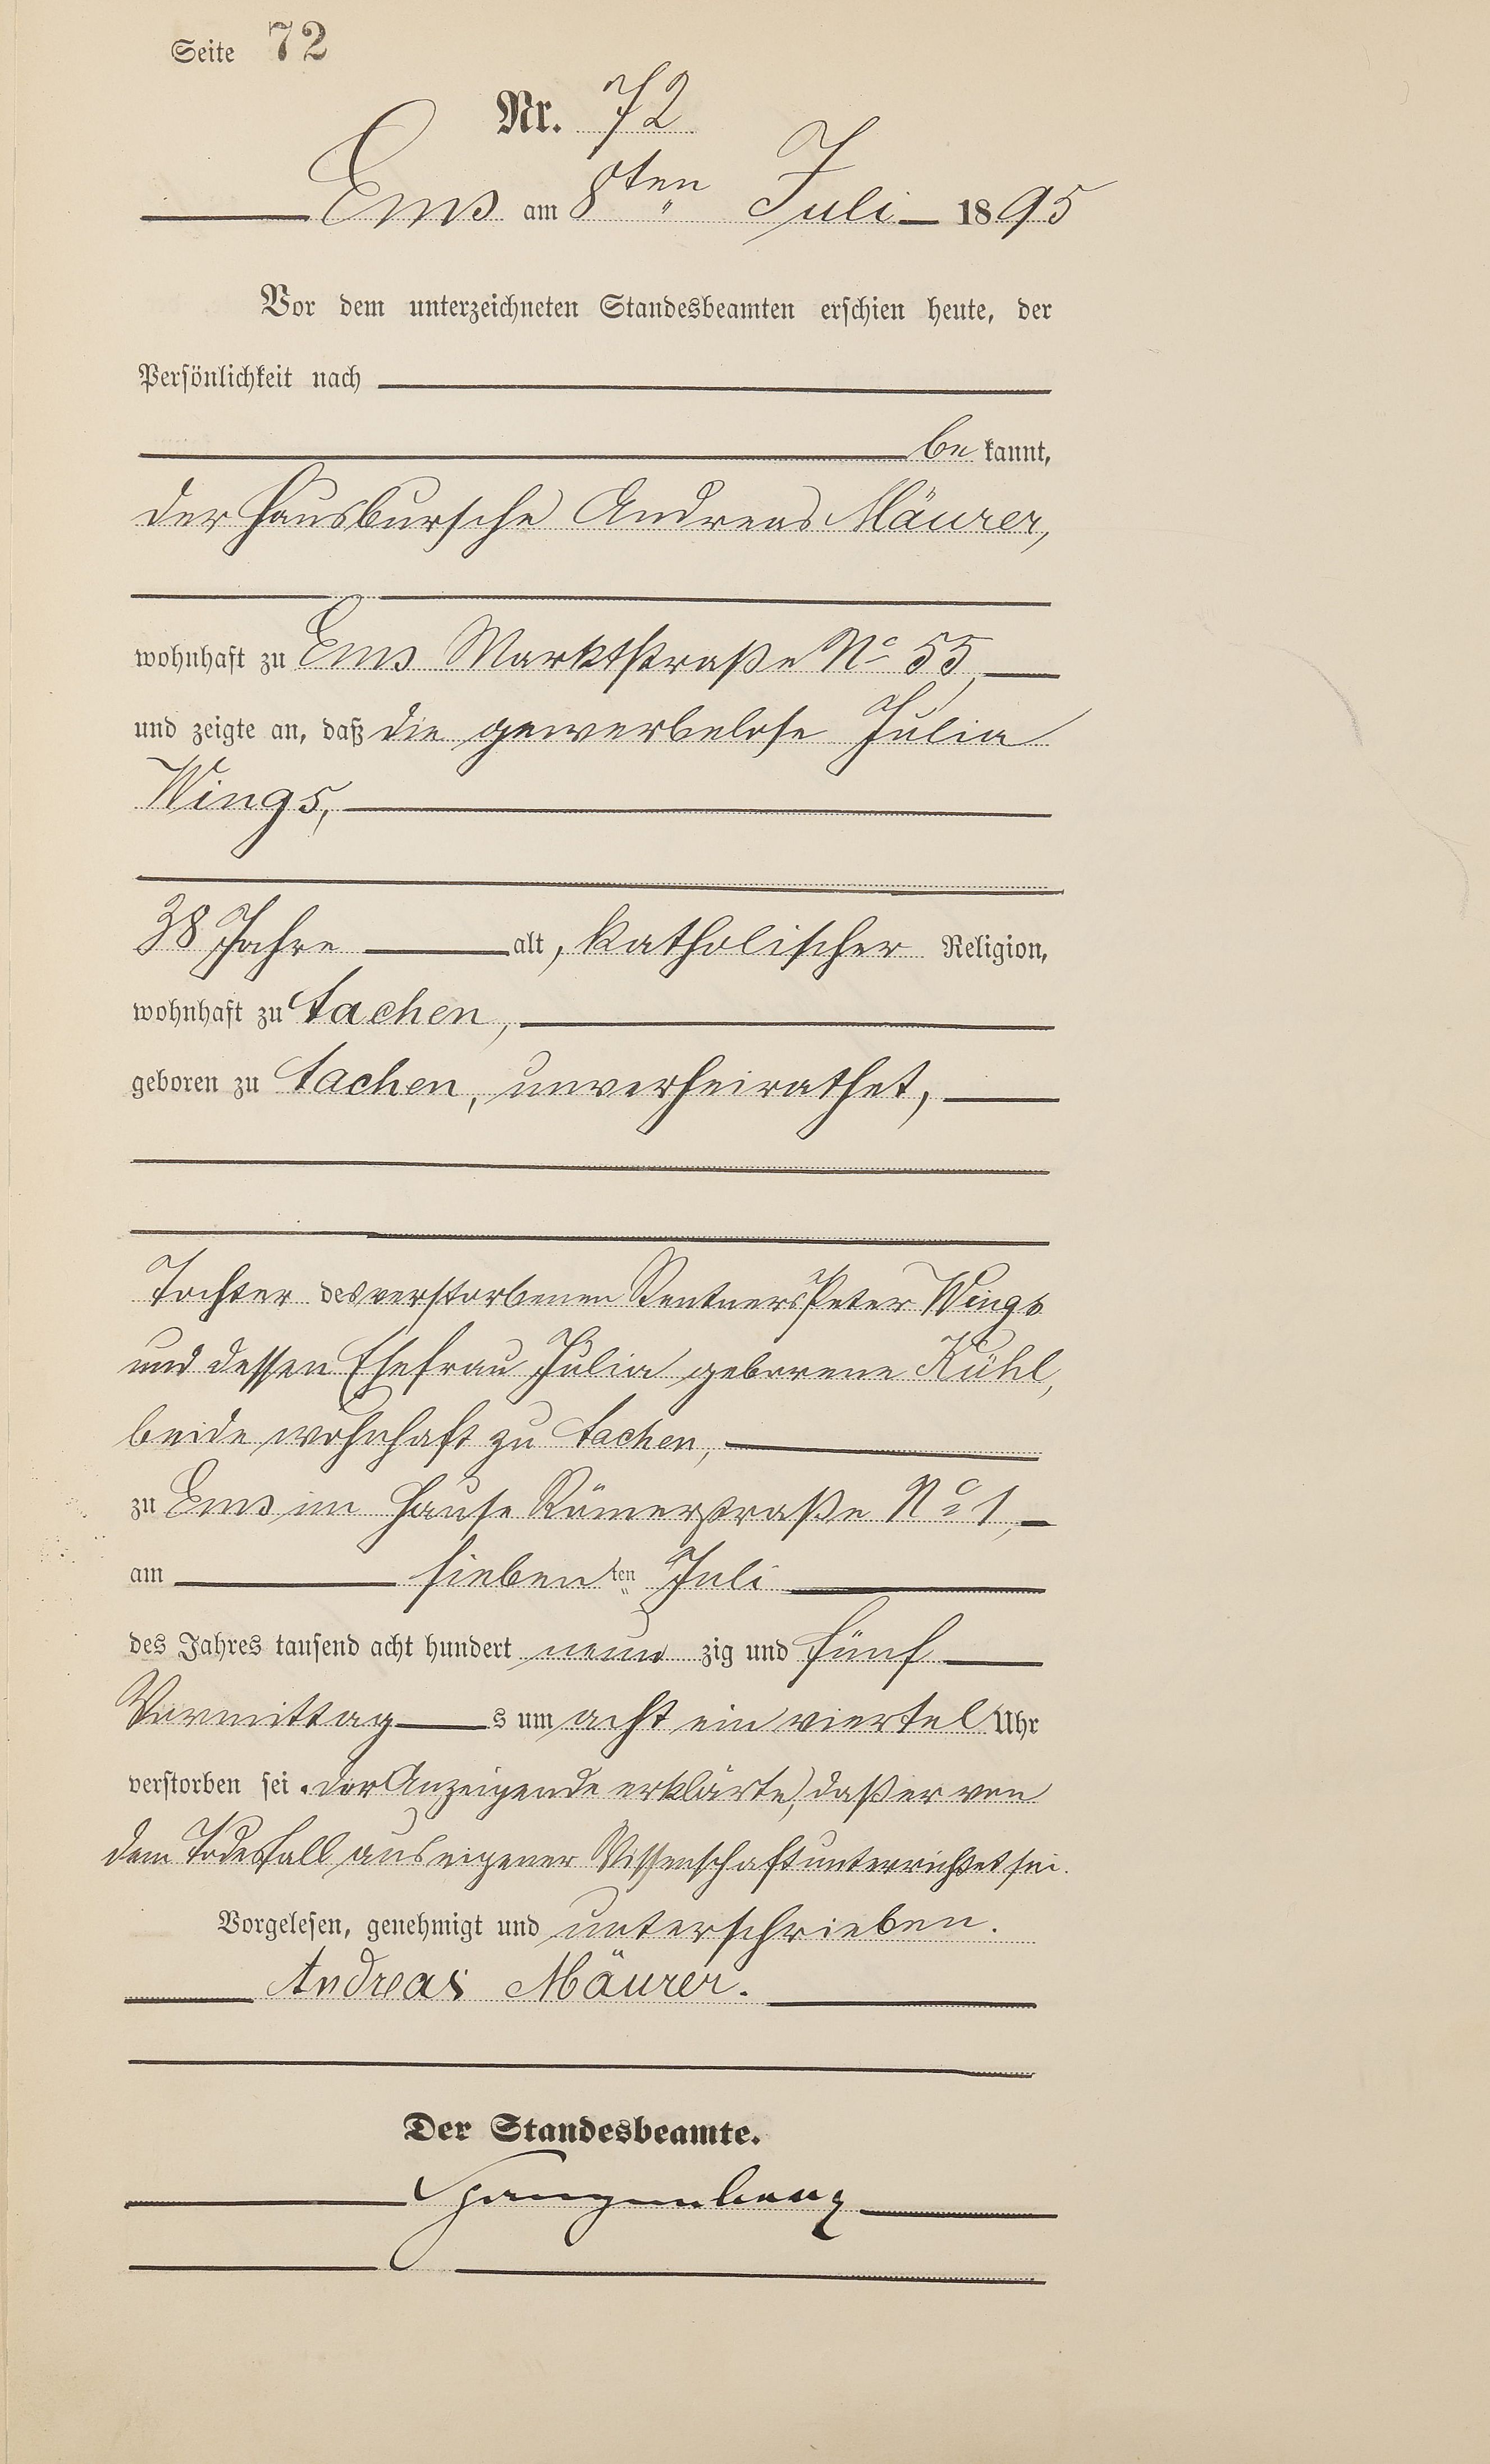 Seite 72
Nr. 72
Ems am 8ten Juli 1895
Vor dem unterzeichneten Standesbeamten erschien heute, der
Persönlichkeit nach
bekannt,
der Hausbursche Andreas Mäurer,
wohnhaft zu Ems Marktstraße No 55,
und zeigte an, daß die gewerbelose Julia
Wings,
38 Jahre alt, katholischer Religion,
wohnhaft zu Aachen,
geboren zu Aachen, unverheirathet,
Tochter des verstorbenen Rentners Peter Wings
und dessen Ehefrau Julia geborene Kühl,
beide wohnhaft zu Aachen,
zu Ems im Hause Römerstraße No 1,
am siebenten Juli
des Jahres tausend acht hundert neunzig und fünf
Vormittags um acht ein viertel Uhr
verstorben sei. Der Anzeigende erklärte, daß er von
dem Todesfall aus eigener Wissenschaft unterrichtet sei.
Vorgelesen, genehmigt und unterschrieben.
Andreas Mäurer.
Der Standesbeamte.
Spangenberg